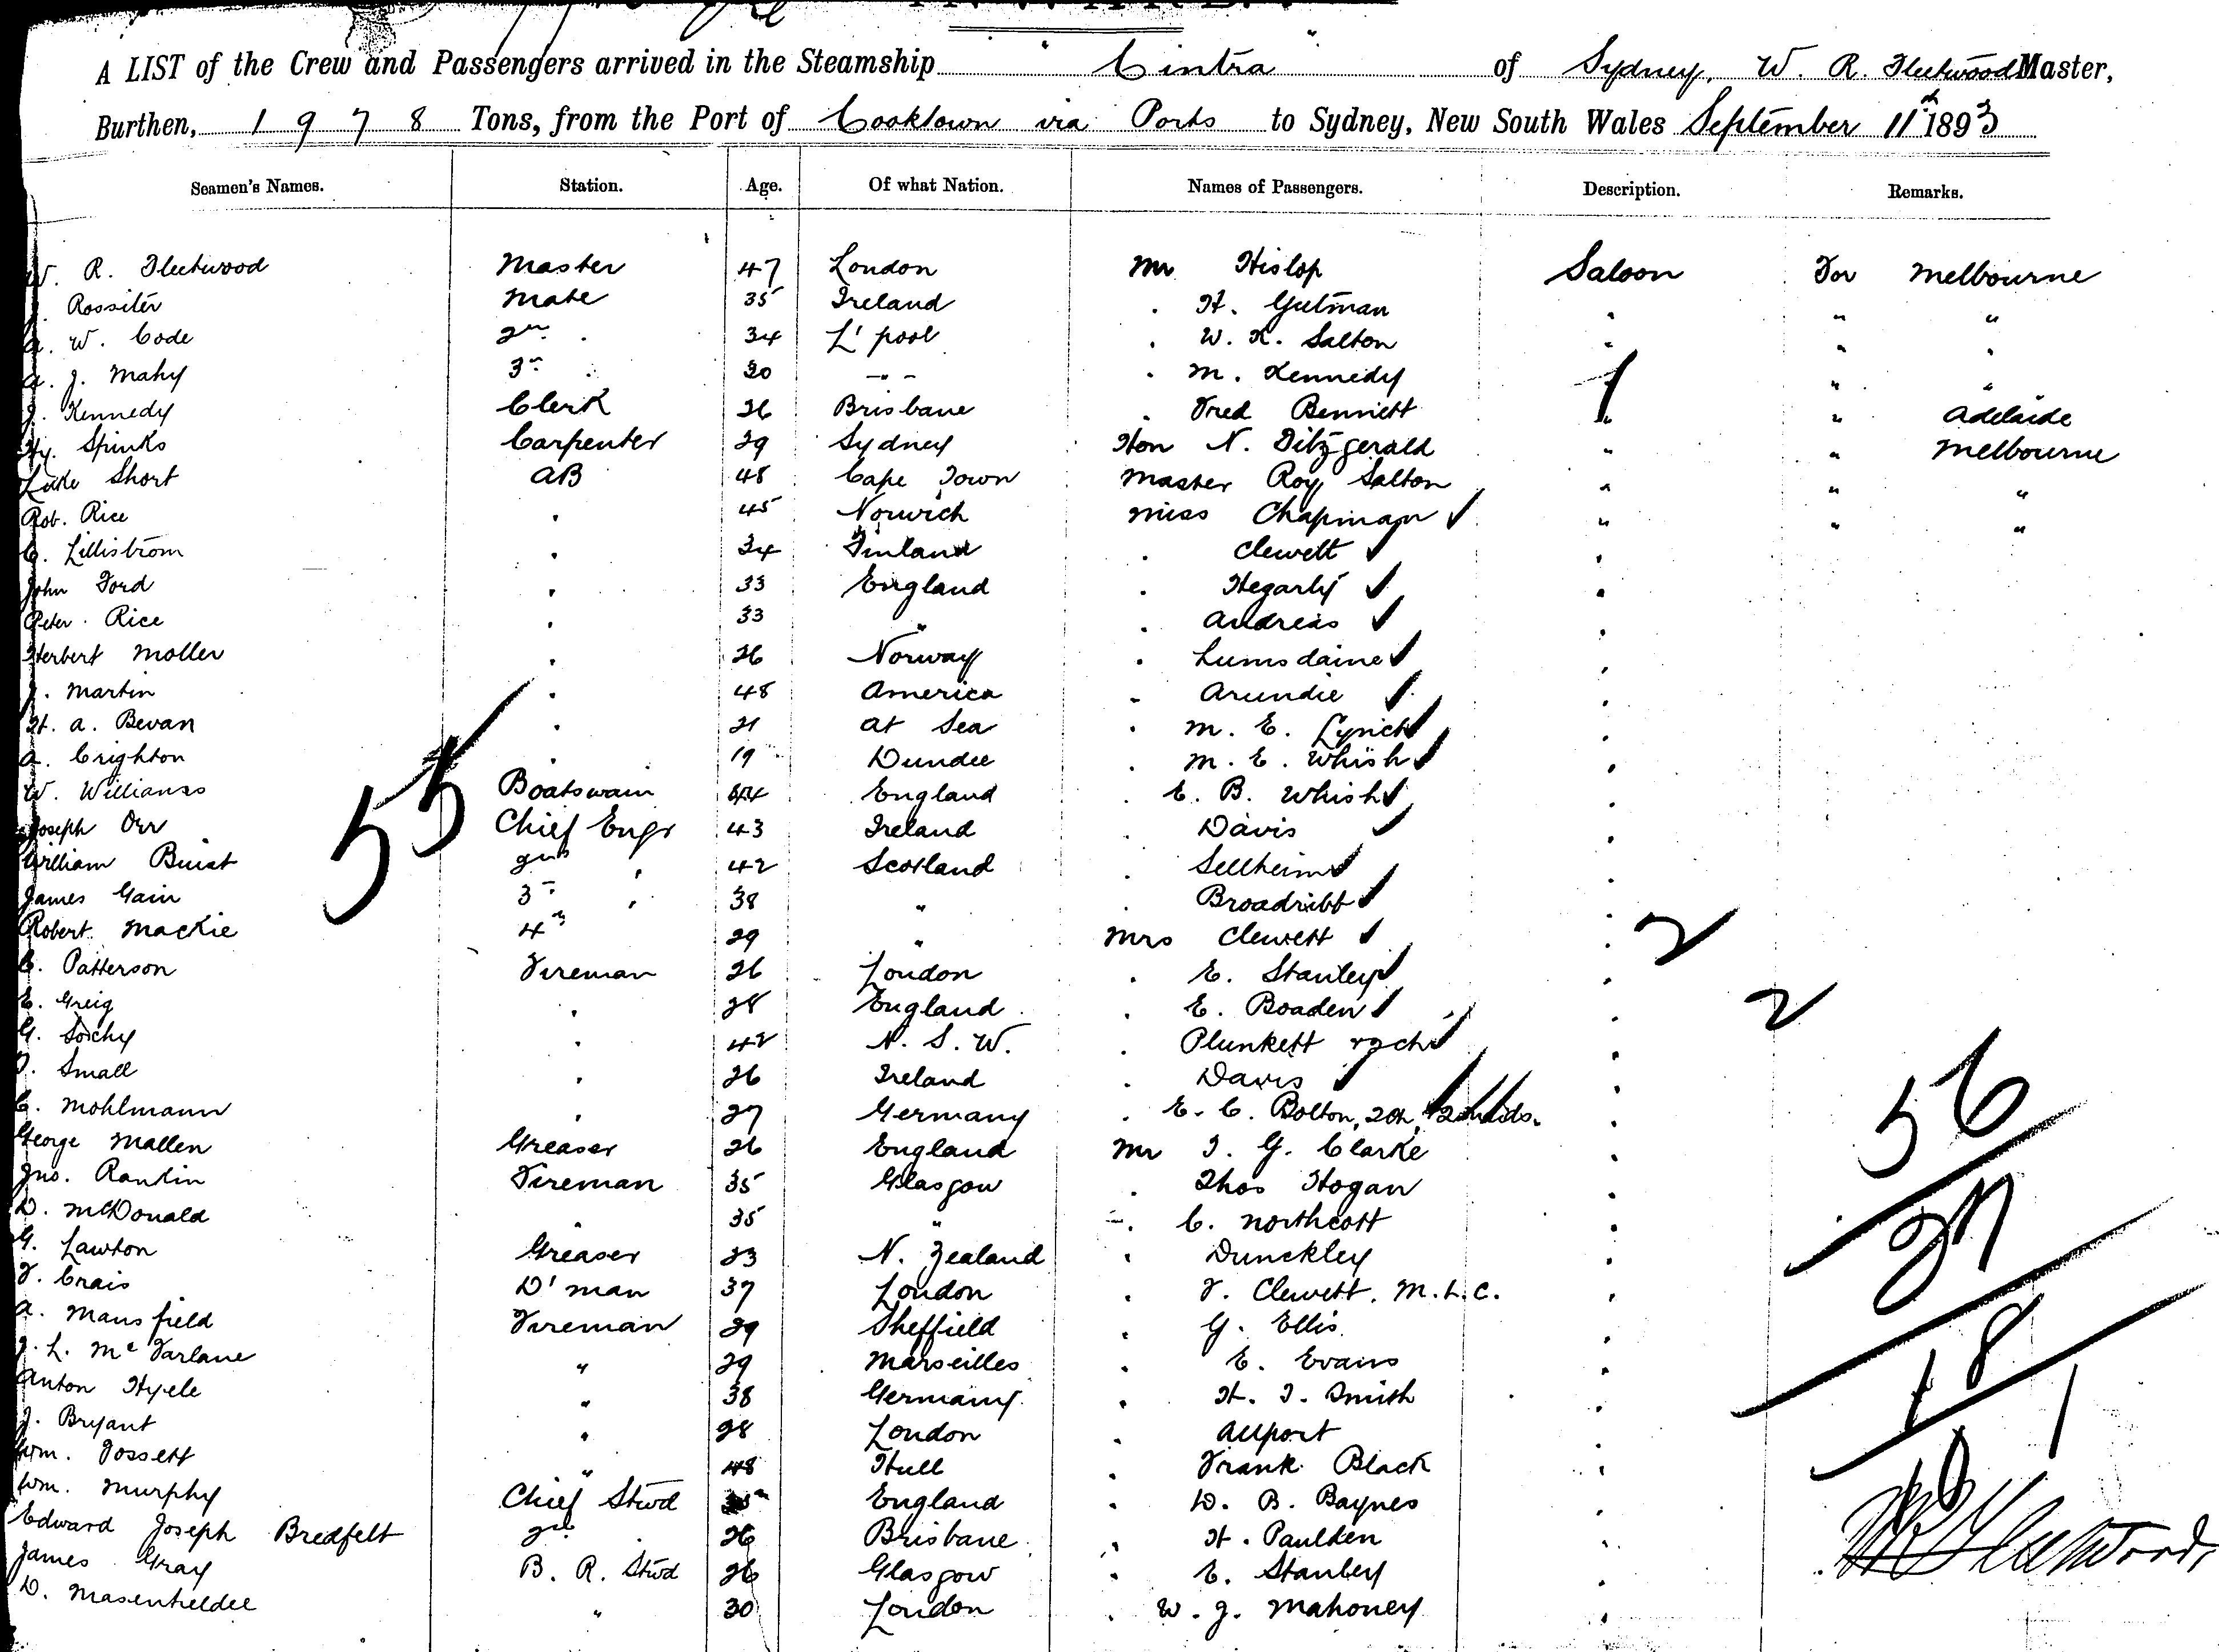 A LIST of the Crew and Passengers arrived in the Steamship "Cintra" of Sydney, W. R. Fleetwood Master,
Burthen, 1978 Tons, from the Port of Cooktown via Ports to Sydney, New South Wales September 11th 1893
Seamen's Names. Station. Age. Of what Nation. Names of Passengers. Description. Remarks.
W. R. Fleetwood Master 47 London Mr Hislop Saloon For Melbourne
J. Rossiter Mate 35 Ireland . H. Gutman . " "
A. W. Code 2nd . 34 L'pool . W. K. Salton . " "
A. J. Mahy 3rd . 30 - " - . M. Kennedy " " "
J. Kennedy Clerk 26 Brisbane . Fred Bennett " " Adelaide
Hy. Spinks Carpenter 29 Sydney Hon N. Fitzgerald " " Melbourne
Luke Short AB 48 Cape Town Master Roy Salton " " "
Rob. Rice . 45 Norwich Miss Chapman " " "
C. Lillistrom . 34 Finland . Clewett .
John Ford . 33 England . Hegarty .
Peter Rice . 33 " . Andreas .
Herbert Moller . 26 Norway . Lumsdaine .
J. Martin . 48 America . Arundie .
H. A. Bevan . 21 At Sea . M. E. Lynch .
A. Crighton . 19 Dundee . M. E. Whish .
W. Williams Boatswain 44 England . E. B. Whish .
Joseph Orr Chief Engr 43 Ireland . Davis .
William Buist 2nd " 42 Scotland . Sellheim .
James Gain 3rd " 38 " . Broadribb .
Robert Mackie 4th 29 " Mrs Clewett .
C. Patterson Fireman 26 London . E. Stanley .
E. Greig . 28 England . E. Boaden .
G. . 42 N. S. W. . Plunkett
Small . 26 Ireland . Davis .
C. Mohlmann . 27 Germany . E. C. Bolton, 2 ch, 2 maids .
George Mallen Greaser 26 England Mr T. G. Clarke .
Jno. Rankin Fireman 35 Glasgow . Thos Hogan .
D. McDonald " 35 " . C. Northcott .
G. Lawton Greaser 23 N. Zealand . Dunckley .
F. Crais D'man 37 London . F. Clewett. M.L.C. .
A. Mansfield Fireman 29 Sheffield . G. Ellis .
J. L. McFarlane " 29 Marseilles . E. Evans .
Anton Hyele " 38 Germany . H. T. Smith .
J. Bryant " 28 London . Allport .
Wm. Fossett " 48 Hull . Frank Black .
Wm. Murphy Chief Stwd England . D. B. Baynes .
Edward Joseph Bredfelt 2nd . 26 Brisbane . H. Paulken .
James Gray B. R. Stwd 26 Glasgow . E. Stanley .
D. Masenheldee " 30 London . W. J. Mahoney .
55
2
2
56
27
18
1
W R Fleetwood